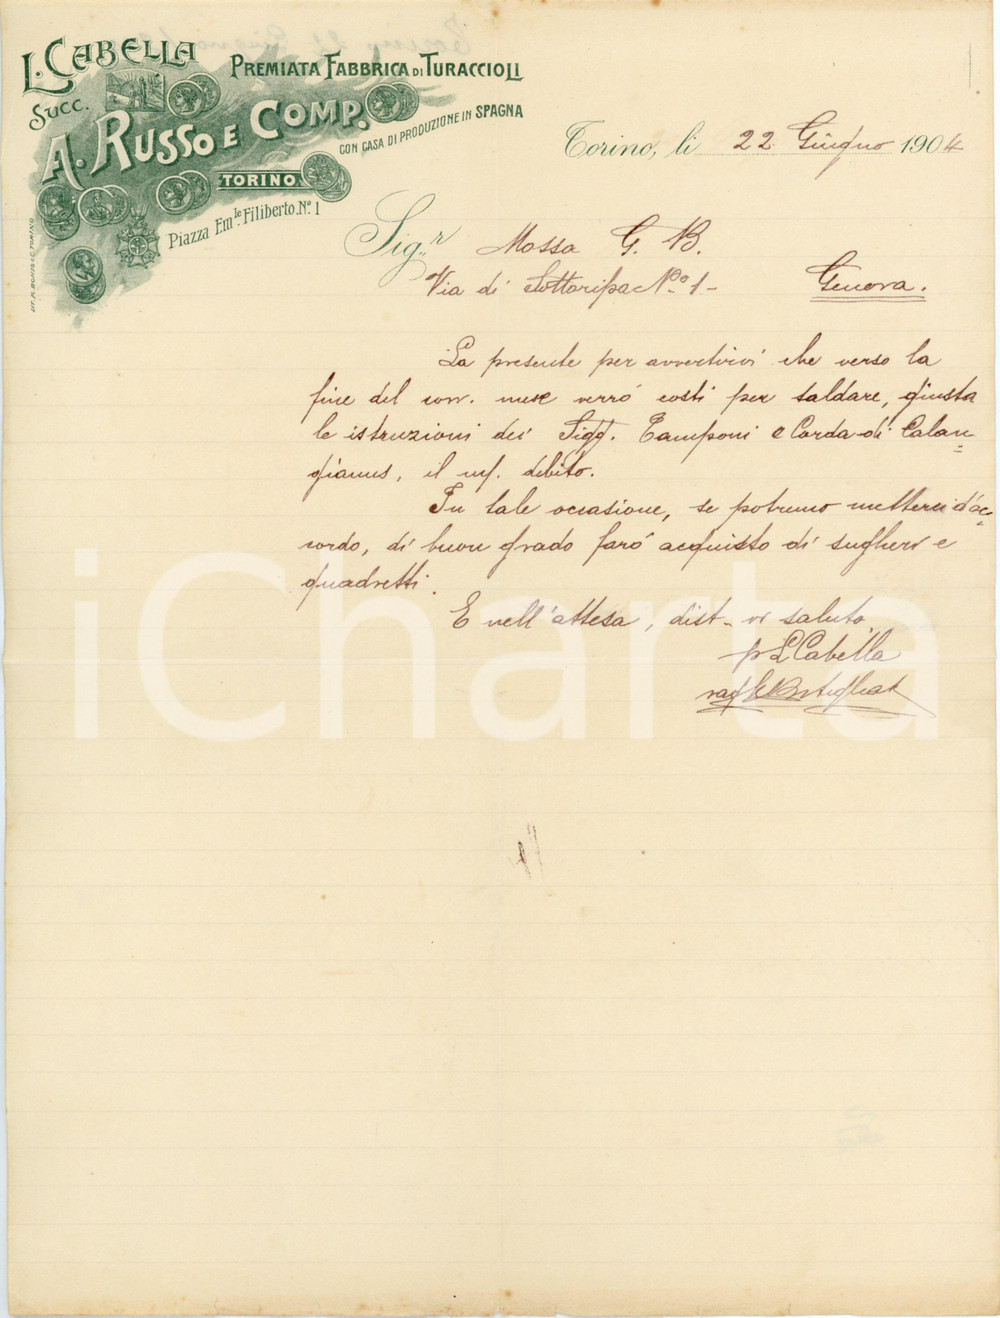 L. CABELLA
SUCC.
A. RUSSO E COMP.
TORINO
Piazza Em.le Filiberto. N.o 1
PREMIATA FABBRICA DI TURACCIOLI
CON CASA DI PRODUZIONE IN SPAGNA
Torino, li 22 Giugno 1904
Sig.r Mossa G. B.
Via di Sottoripa N.o 1 -
Genova.
La presente per avvertirvi che verso la
fine del corr. mese verrò costì per saldare, giusta
le istruzioni dei Sigg. Tamponi e Corda di Calan=
gianus, il mf. debito.
In tale occasione, se potremo metterci d'ac=
cordo, di buon grado farò acquisto di sugheri e
quadretti.
E nell'attesa, dist. vi saluto
p L Cabella
iCharta